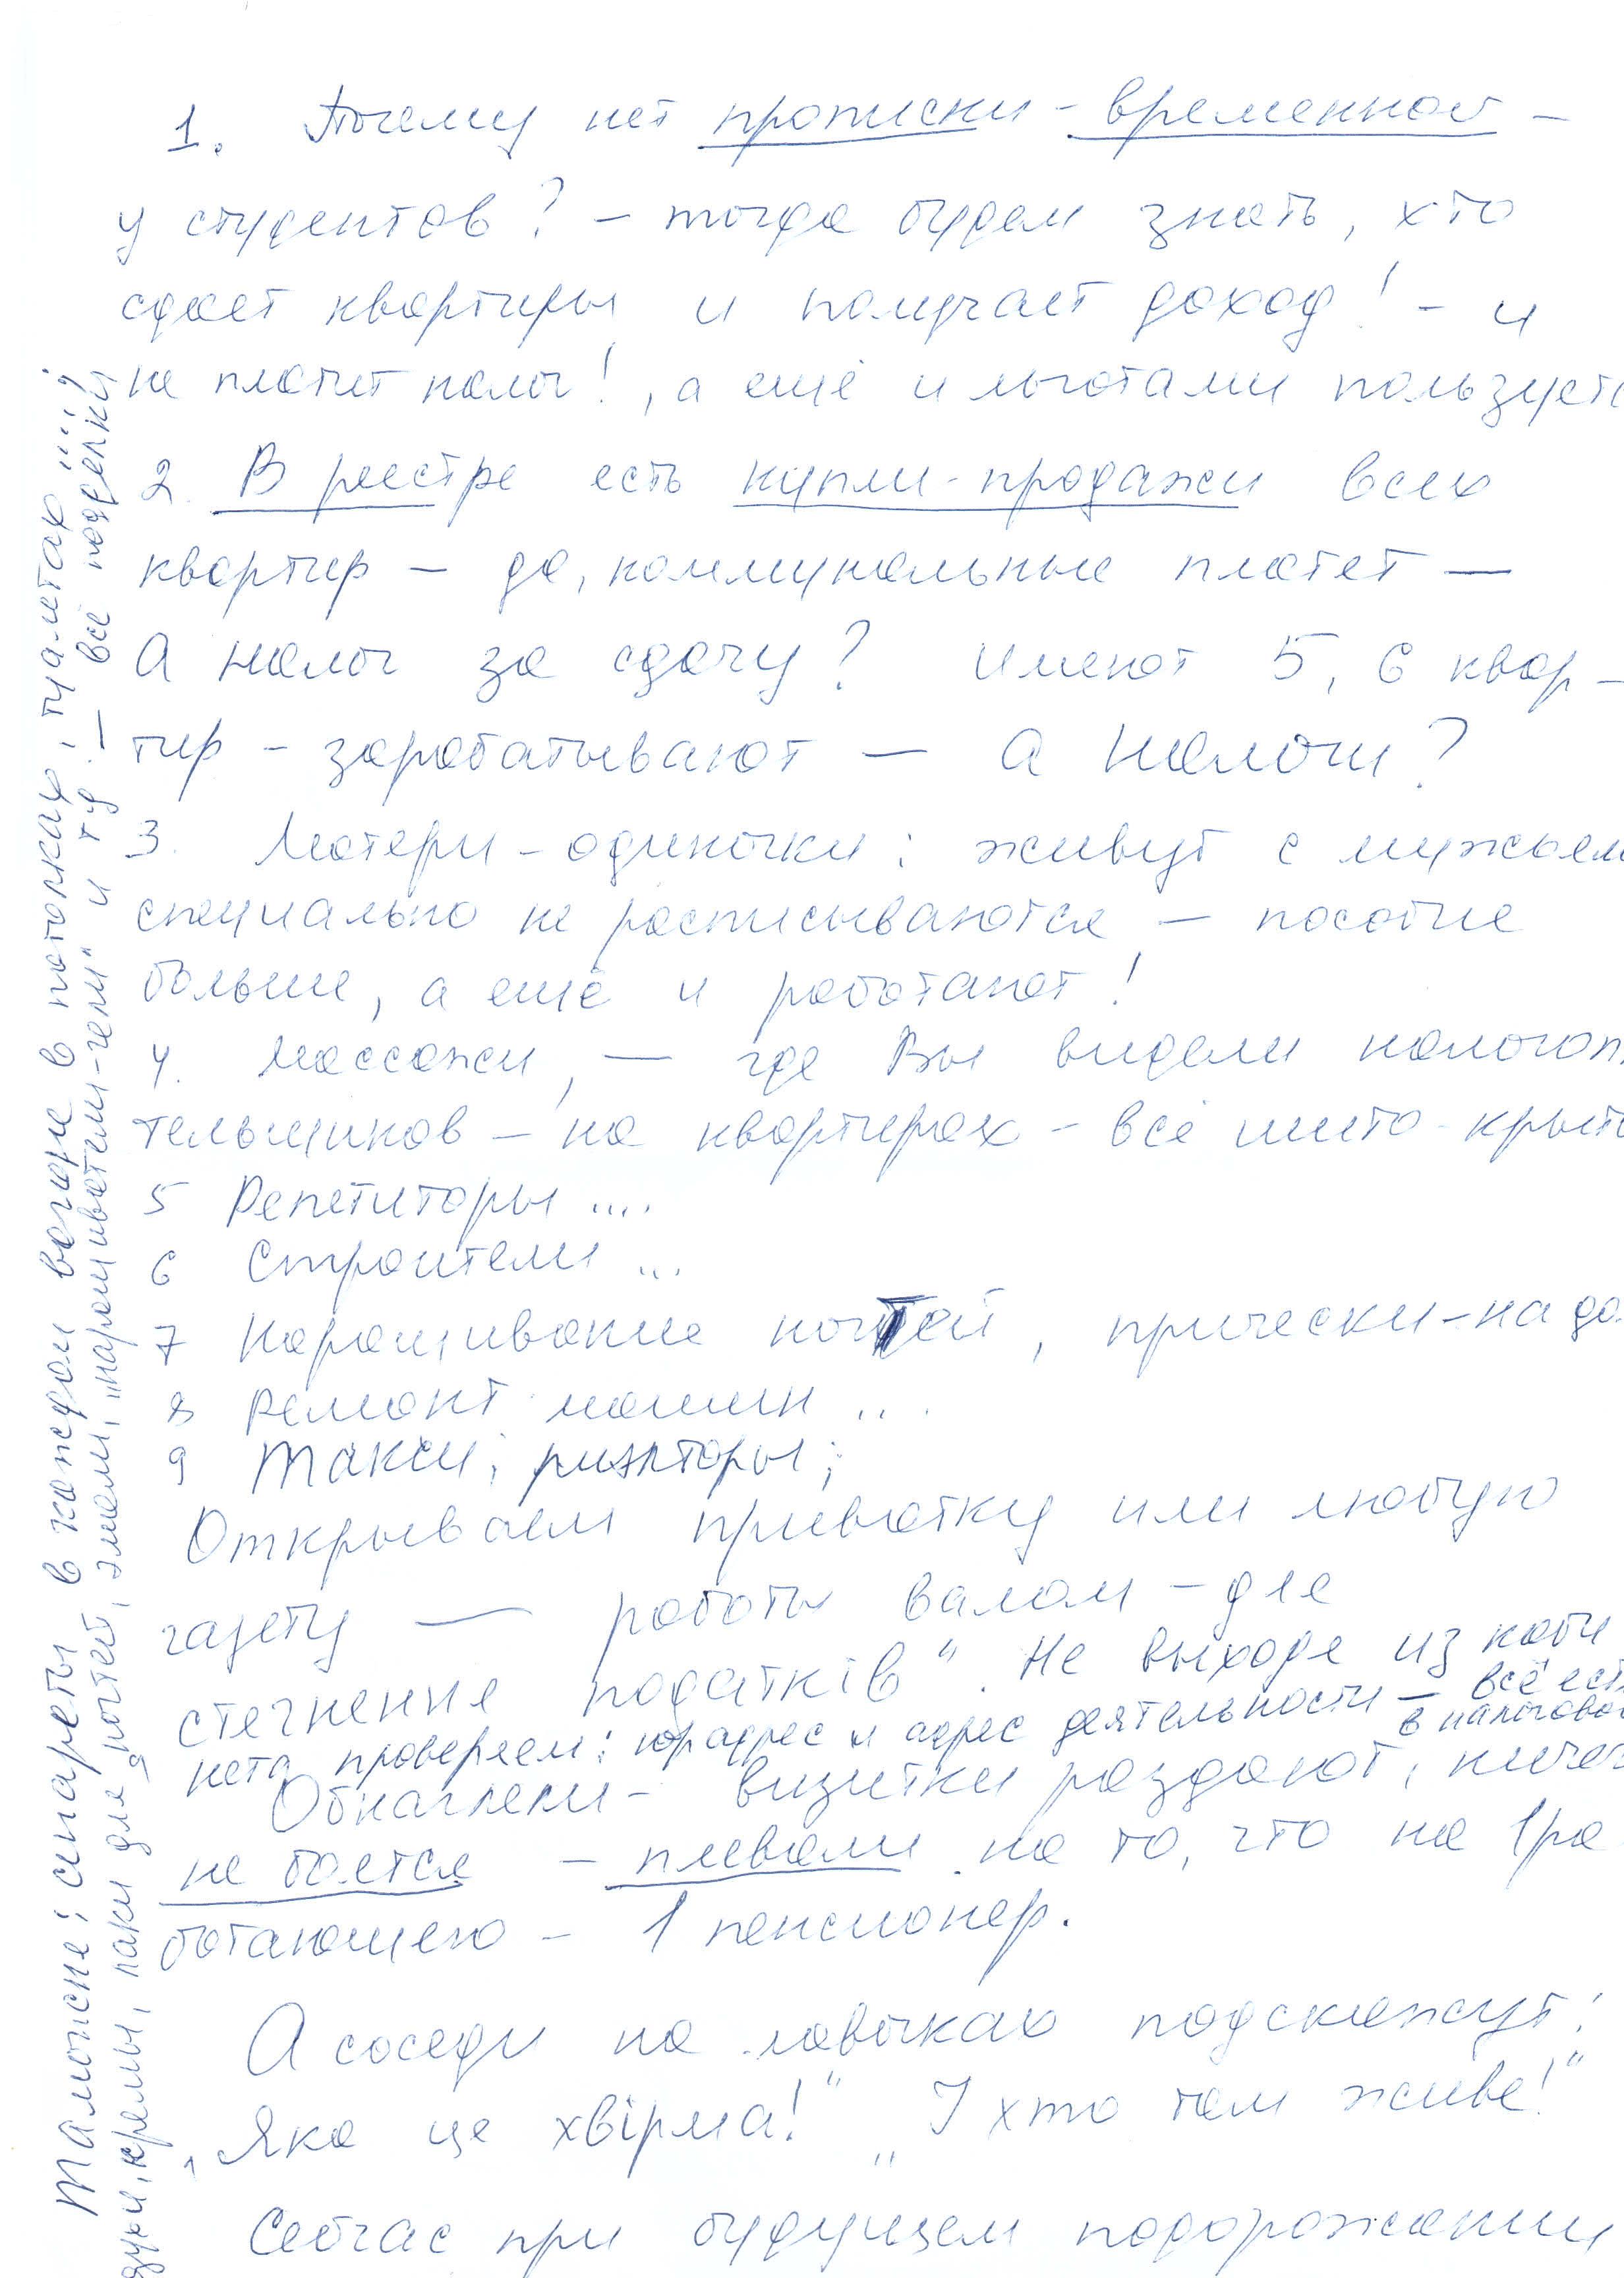 1. Почему нет прописки - временной -
у студентов? - тогда будем знать, хто
сдает квартиры и получает доход! - и
не платит налог!, а ещё и льготами пользуетс
2. В реестре есть купли-продажи всех
квартир - да, коммунальные платят —
А налог за сдачу? Имеют 5, 6 квар-
тир - зарабатывают — а налоги?
3. Матери-одиночки: живут с мужьем
специально не расписываются — пособие
больше, а ещё и работают!
4. Массажи, — где Вы видели налогоп
тельщиков - на квартирах - всё шито-крыто
5 Репетиторы ....
6 Строители ...
7 Наращивание ногтей, прически-на до
8 Ремонт машин ...
9 Такси; риэлторы;
Открываем приватку или любую
газету — работы валом - для
стягнення податків". Не выходя из каби
нета проверяем: юр адрес и адрес деятельности — всё есть
в налоговой
Обнаглели - визитки раздают, ничег
не боятся - плевали на то, что на 1 ра
ботающего - 1 пенсионер.
А соседи на лавочках подскажут:
„Яка це хвірма!" „І хто там живе!"
Сейчас при будущем подорожании
Таможня: сигареты в каждом вагоне в потолках, туалетах ....;
духи, кремы, лаки для ногтей, эмали, „наращиватели-гели" и тд. — всё подделки